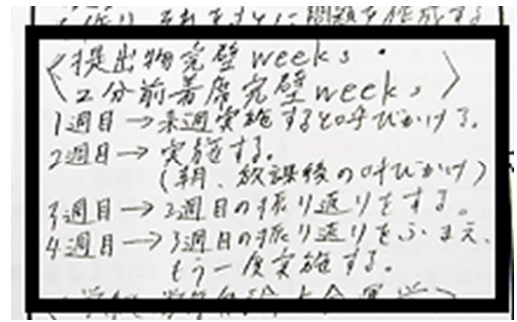 振り、それをもとに問題を作成する
〈提出物完璧weeks・
〈2分前着席完璧weeks 〉
1週目→来週実施すると呼びかける。
2週目→実施する。
(朝、放課後の呼びかけ)
3週目→2週目の振り返りをする。
4週目→3週目の振り返りをふまえ、
もう一度実施する。